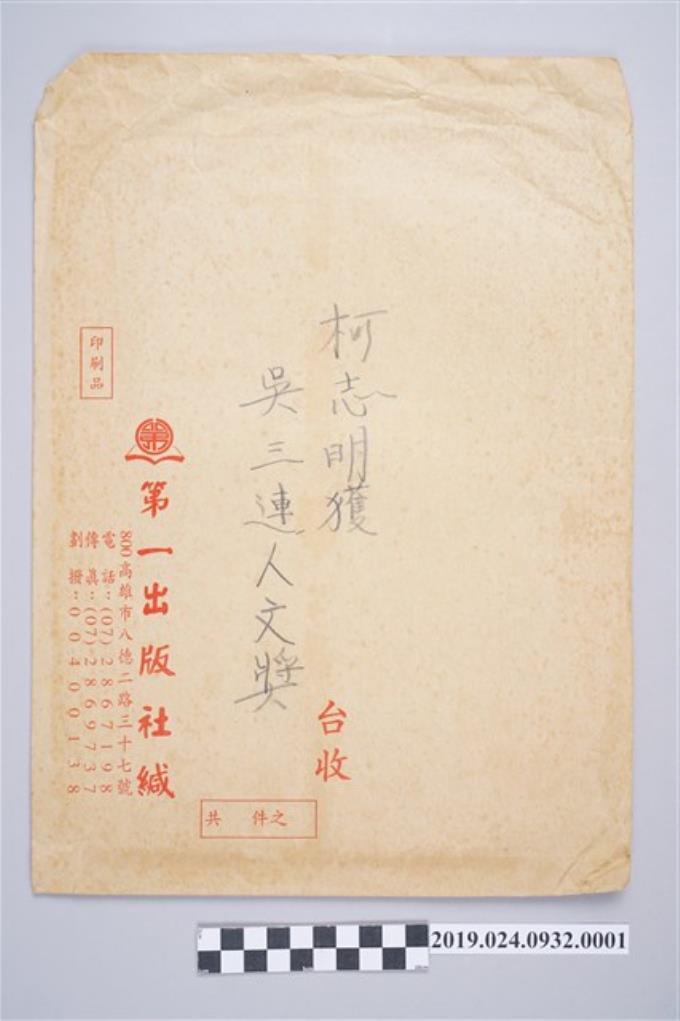 柯志明獲
吳三連人文獎
台收
共　　件之
印刷品
第
第一出版社緘
800高雄市八德二路三十七號
電話：(07)2867198
傳眞：(07)2869737
劃撥：00400138
2019.024.0932.0001